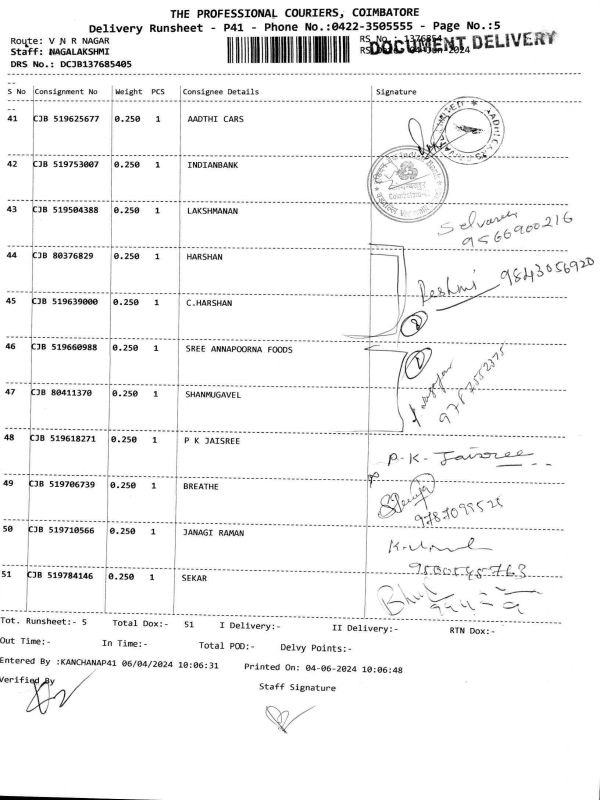 THE PROFESSIONAL COURIERS, COIMBATORE
Delivery Runsheet - P41 - Phone No.:0422-3505555 - Page No.:5
Route: V N R NAGAR
RS No.: 1376854
Staff: NAGALAKSHMI
04-Jun-2024
DOCUMENT DELIVERY
DRS No.: DCJB137685405
S No Consignment No Weight PCS Consignee Details Signature
41 CJB 519625677 0.250 1 AADTHI CARS
42 CJB 519753007 0.250 1 INDIANBANK
43 CJB 519504388 0.250 1 LAKSHMANAN
9566900216
44 CJB 80376829 0.250 1 HARSHAN
Reshmi 9843056920
45 CJB 519639000 0.250 1 C.HARSHAN
2
46 CJB 519660988 0.250 1 SREE ANNAPOORNA FOODS
1
47 CJB 80411370 0.250 1 SHANMUGAVEL
48 CJB 519618271 0.250 1 P K JAISREE
P.K. Jaisree
49 CJB 519706739 0.250 1 BREATHE
50 CJB 519710566 0.250 1 JANAGI RAMAN
51 CJB 519784146 0.250 1 SEKAR
Tot. Runsheet:- 5 Total Dox:- 51 I Delivery:- II Delivery:- RTN Dox:-
Out Time:- In Time:- Total POD:- Delvy Points:-
Entered By :KANCHANAP41 06/04/2024 10:06:31 Printed On: 04-06-2024 10:06:48
Verified By
Staff Signature